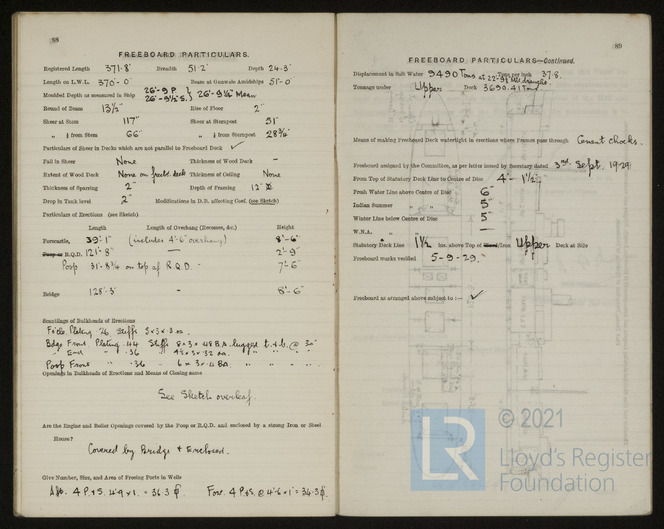 88
FREEBOARD PARTICULARS.
Registered Length 371·8' Breadth 51·2' Depth 24·3'
Length on L.W.L. 370'-0" Beam at Gunwale Amidships 51'-0"
Moulded Depth as measured in Ship 26'-9 P. 26'-9½ S. } 26'-9¼" Mean
Round of Beam 13½" Rise of Floor 2"
Sheer at Stem 117" Sheer at Sternpost 51"
" ⅛ from Stem 66" " ⅛ from Sternpost 28¾"
Particulars of Sheer in Decks which are not parallel to Freeboard Deck ✓
Fall in Sheer None Thickness of Wood Deck -
Extent of Wood Deck None on freeb'd deck Thickness of Ceiling None
Thickness of Sparring 2" Depth of Framing 12"
Drop in Tank level 2" Modifications in D.B. affecting Coef. (see Sketch)
Particulars of Erections (see Sketch)
Length Length of Overhang (Recesses, &c.) Height
Forecastle, 39'-1" (includes 4'-6" overhang) 8'-6"
Poop or R.Q.D. 121'-8" — 2'-9"
Poop 31'-8¾ on top of R.Q.D. - 7'-6"
Bridge 128'-3" - 8'-6"
Scantlings of Bulkheads of Erections
Fo'cle. Plating ·26 Stiffs 3 x 3 x ·30
Bdge Front Plating ·44 Stiffs 8 x 3 x ·48 B.A. lugged t. & b. @ 30"
" End " ·36
Poop Front " ·36 " 6 x 3 x ·4 B.A.
Openings in Bulkheads of Erections and Means of Closing same
See Sketch overleaf.
Are the Engine and Boiler Openings covered by the Poop or R.Q.D. and enclosed by a strong Iron or Steel
House?
Covered by Bridge & Enclosed.
Give Number, Size, and Area of Freeing Ports in Wells
Aft. 4 P.&S. 4'·9 x 1. = 36·3 Forw. 4 P.&S. @ 4'·6 x 1' = 36·3
89
FREEBOARD PARTICULARS—Continued.
Displacement in Salt Water 9490 Tons at 22'-9½ mld draught. Tons per inch 37·8.
Tonnage under Upper Deck 3690·41 Tons
Means of making Freeboard Deck watertight in erections where Frames pass through Cement chocks.
Freeboard assigned by the Committee, as per letter issued by Secretary dated 3rd Sept. 1929
From Top of Statutory Deck Line to Centre of Disc 4'-1½"
Fresh Water Line above Centre of Disc 6"
Indian Summer " " 5"
Winter Line below Centre of Disc 5"
W.N.A. " " -
Statutory Deck Line 1½ ins. above Top of Wood/Iron Upper Deck at Side
Freeboard marks verified 5-9-29.
Freeboard as arranged above subject to :— ✓
LR
© 2021
Lloyd's Register
Foundation